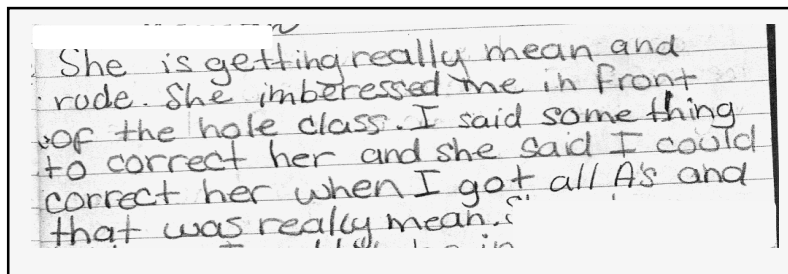 She is getting really mean and
rude. She imberessed me in front
of the hole class. I said some thing
to correct her and she said I could
correct her when I got all A's and
that was really mean.